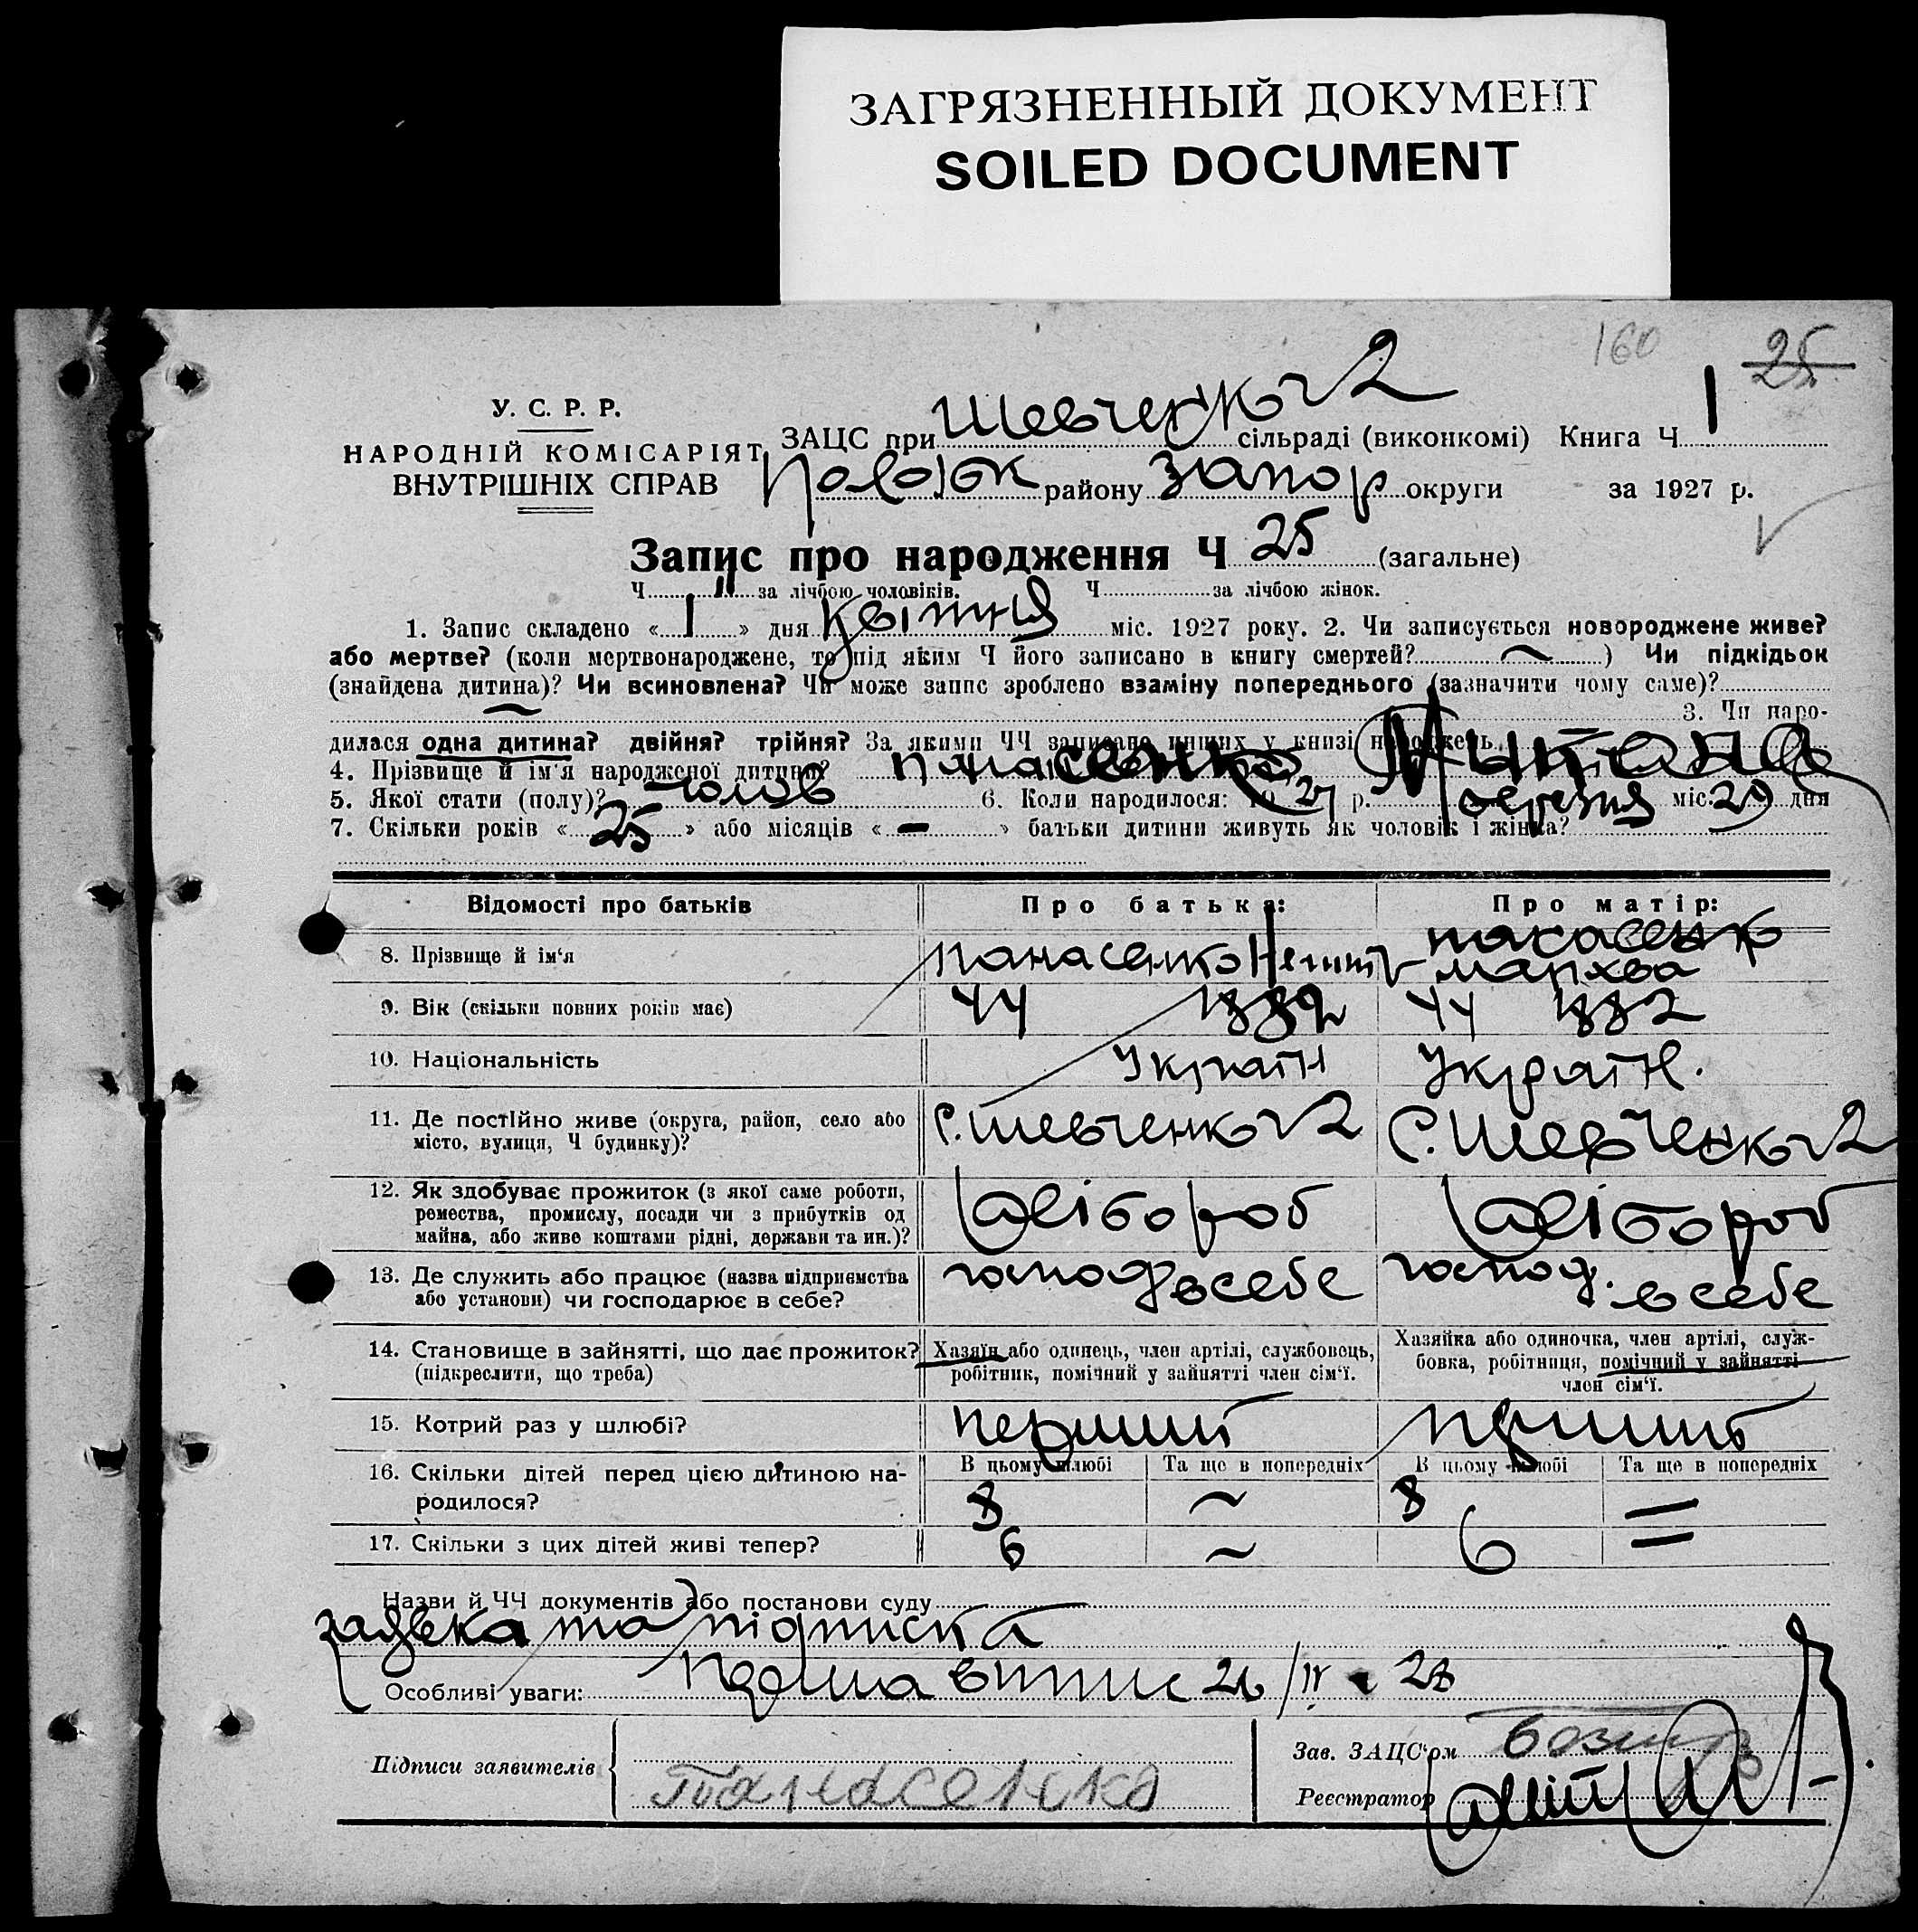 ЗАГРЯЗНЕННЫЙ ДОКУМЕНТ
SOILED DOCUMENT
160 25
У. С. Р. Р.
НАРОДНІЙ КОМІСАРІЯТ
ВНУТРІШНІХ СПРАВ
ЗАЦС при Шевченко №2 сільраді (виконкомі) Книга Ч 1
Полог району Запор округи за 1927 р.
Запис про народження Ч 25 (загальне)
Ч 11 за лічбою чоловіків. Ч за лічбою жінок.
1. Запис складено « 1 » дня Квітня міс. 1927 року. 2. Чи записується новороджене живе?
або мертве? (коли мертвонароджене, то під яким Ч його записано в книгу смертей? ~ ) Чи підкідьок
(знайдена дитина)? Чи всиновлена? Чи може запис зроблено взаміну попереднього (зазначити чому саме)?
~ 3. Чи наро-
дилася одна дитина? двійня? трійня? За якими ЧЧ записано инших у книзі народжень
4. Прізвище й ім'я народженої дитини? Панасенко Микола
5. Якої стати (полу)? чолов 6. Коли народилося: 19 27 р. березня міс. 29 дня
7. Скільки років « 25 » або місяців « — » батьки дитини живуть як чоловік і жінка?
Відомості про батьків
Про батька:
Про матір:
8. Прізвище й ім'я
Панасенко
Панасенко
9. Вік (скільки повних років має)
44 1882
44 1882
10. Національність
Україн
Україн.
11. Де постійно живе (округа, район, село або
місто, вулиця, Ч будинку)?
с. Шевченко №2
с. Шевченко №2
12. Як здобуває прожиток (з якої саме роботи,
ремества, промислу, посади чи з прибутків од
майна, або живе коштами рідні, держави та ин.)?
хлібороб
хлібороб
13. Де служить або працює (назва підприємства
або установи) чи господарює в себе?
господ в себе
господ. в себе
14. Становище в зайнятті, що дає прожиток?
(підкреслити, що треба)
Хазяїн або одинець, член артілі, службовець,
робітник, помічний у зайнятті член сім'ї.
Хазяйка або одиночка, член артілі, служ-
бовка, робітниця, помічний у зайнятті
член сім'ї.
15. Котрий раз у шлюбі?
перший
перший
16. Скільки дітей перед цією дитиною на-
родилося?
В цьому шлюбі Та ще в попередніх В цьому шлюбі Та ще в попередніх
8 ~ 8 =
17. Скільки з цих дітей живі тепер?
6 ~ 6 =
Назви й ЧЧ документів або постанови суду
заявка та підписка
Особливі уваги: витпис 26/IV 28
Підписи заявителів
Панасенко
Зав. ЗАЦС'ом
Реєстратор